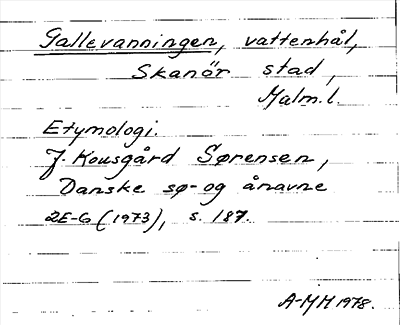 Gallevanningen, vattenhål,
Skanör stad,
Malm.l.
Etymologi.
J. Kousgård Sørensen,
Danske sø- og ånavne
2E-G (1973), s. 187.
A-MH 1978.